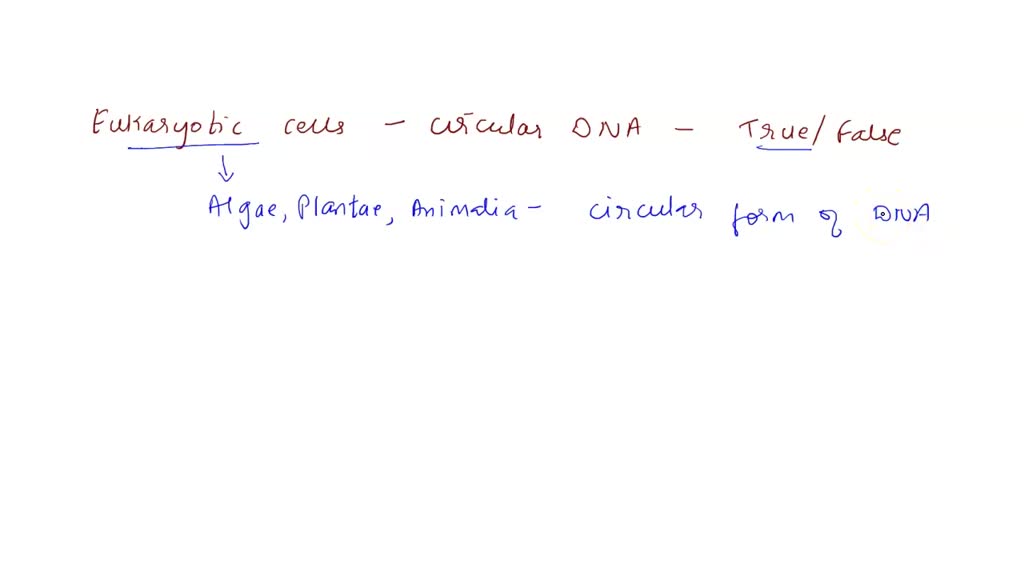 Eukaryotic cells - circular DNA - True/False
Algae, Plantae, Animalia - circular form of DNA